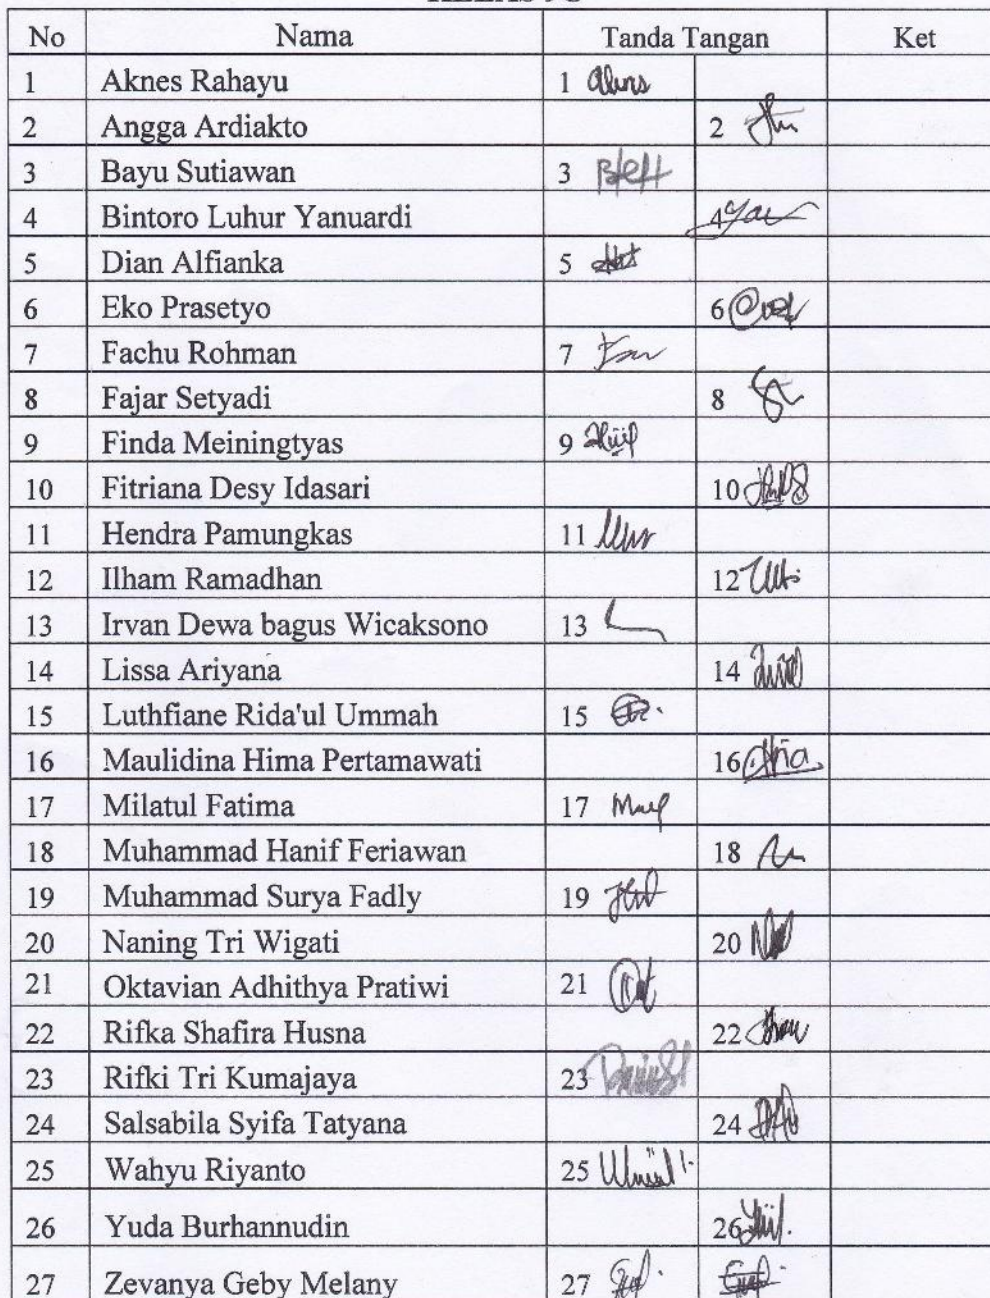 No Nama Tanda Tangan Ket
1 Aknes Rahayu 1
2 Angga Ardiakto 2
3 Bayu Sutiawan 3
4 Bintoro Luhur Yanuardi 4
5 Dian Alfianka 5
6 Eko Prasetyo 6
7 Fachu Rohman 7
8 Fajar Setyadi 8
9 Finda Meiningtyas 9
10 Fitriana Desy Idasari 10
11 Hendra Pamungkas 11
12 Ilham Ramadhan 12
13 Irvan Dewa bagus Wicaksono 13
14 Lissa Ariyana 14
15 Luthfiane Rida'ul Ummah 15
16 Maulidina Hima Pertamawati 16
17 Milatul Fatima 17
18 Muhammad Hanif Feriawan 18
19 Muhammad Surya Fadly 19
20 Naning Tri Wigati 20
21 Oktavian Adhithya Pratiwi 21
22 Rifka Shafira Husna 22
23 Rifki Tri Kumajaya 23
24 Salsabila Syifa Tatyana 24
25 Wahyu Riyanto 25
26 Yuda Burhannudin 26
27 Zevanya Geby Melany 27